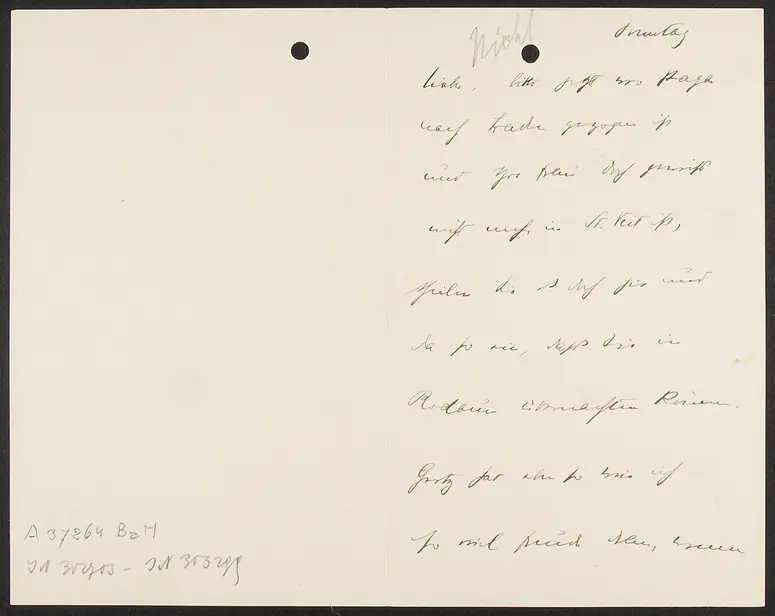 Nicht
Sonntag
lieber, bitte jetzt wo Papa
nach gezogen ist
und Ihre Frau doch gewiss
nicht mehr in St. Veit ist,
theilen Sie es doch hie und
da so ein, dass Sie in
Rodaun übernachten können.
Gerty hat ebenso wie ich
so viel Freude dran, wenn
A 37264 BaM